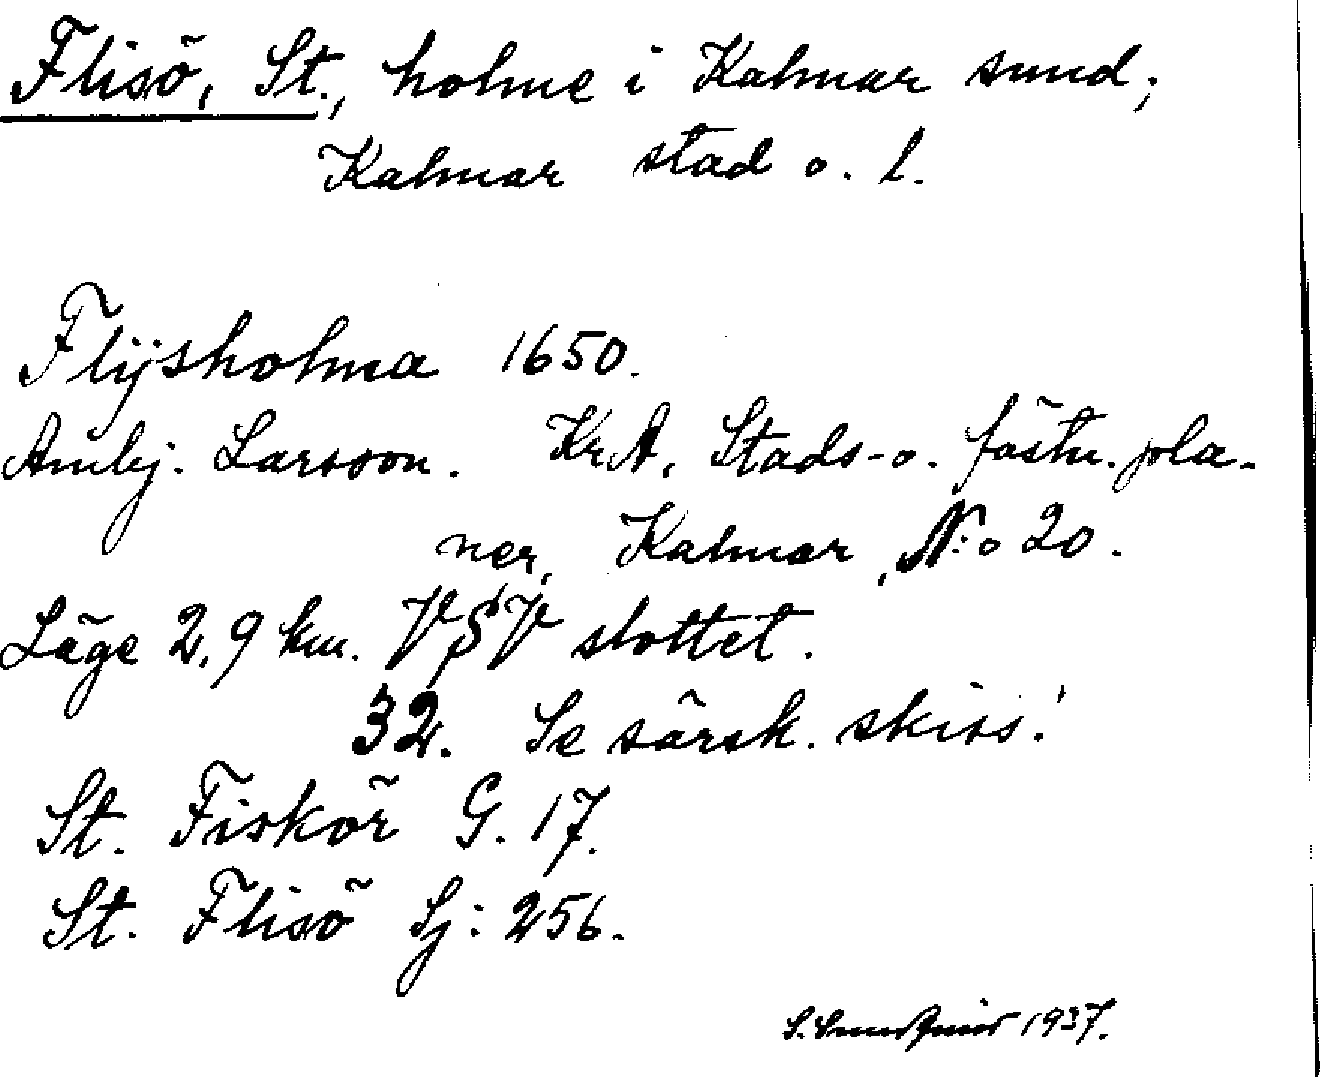 Flisö, St., holme i Kalmar sund;
Kalmar stad o. l.
Flijsholma 1650.
Ambj. Larsson. KrA, Stads- o. fästn. pla-
ner, Kalmar, N:o 20.
Läge 2,9 km. VSV slottet.
32. Se särsk. skiss!
St. Fiskör G. 17.
St. Flisö Sj: 256.
S. 1937.